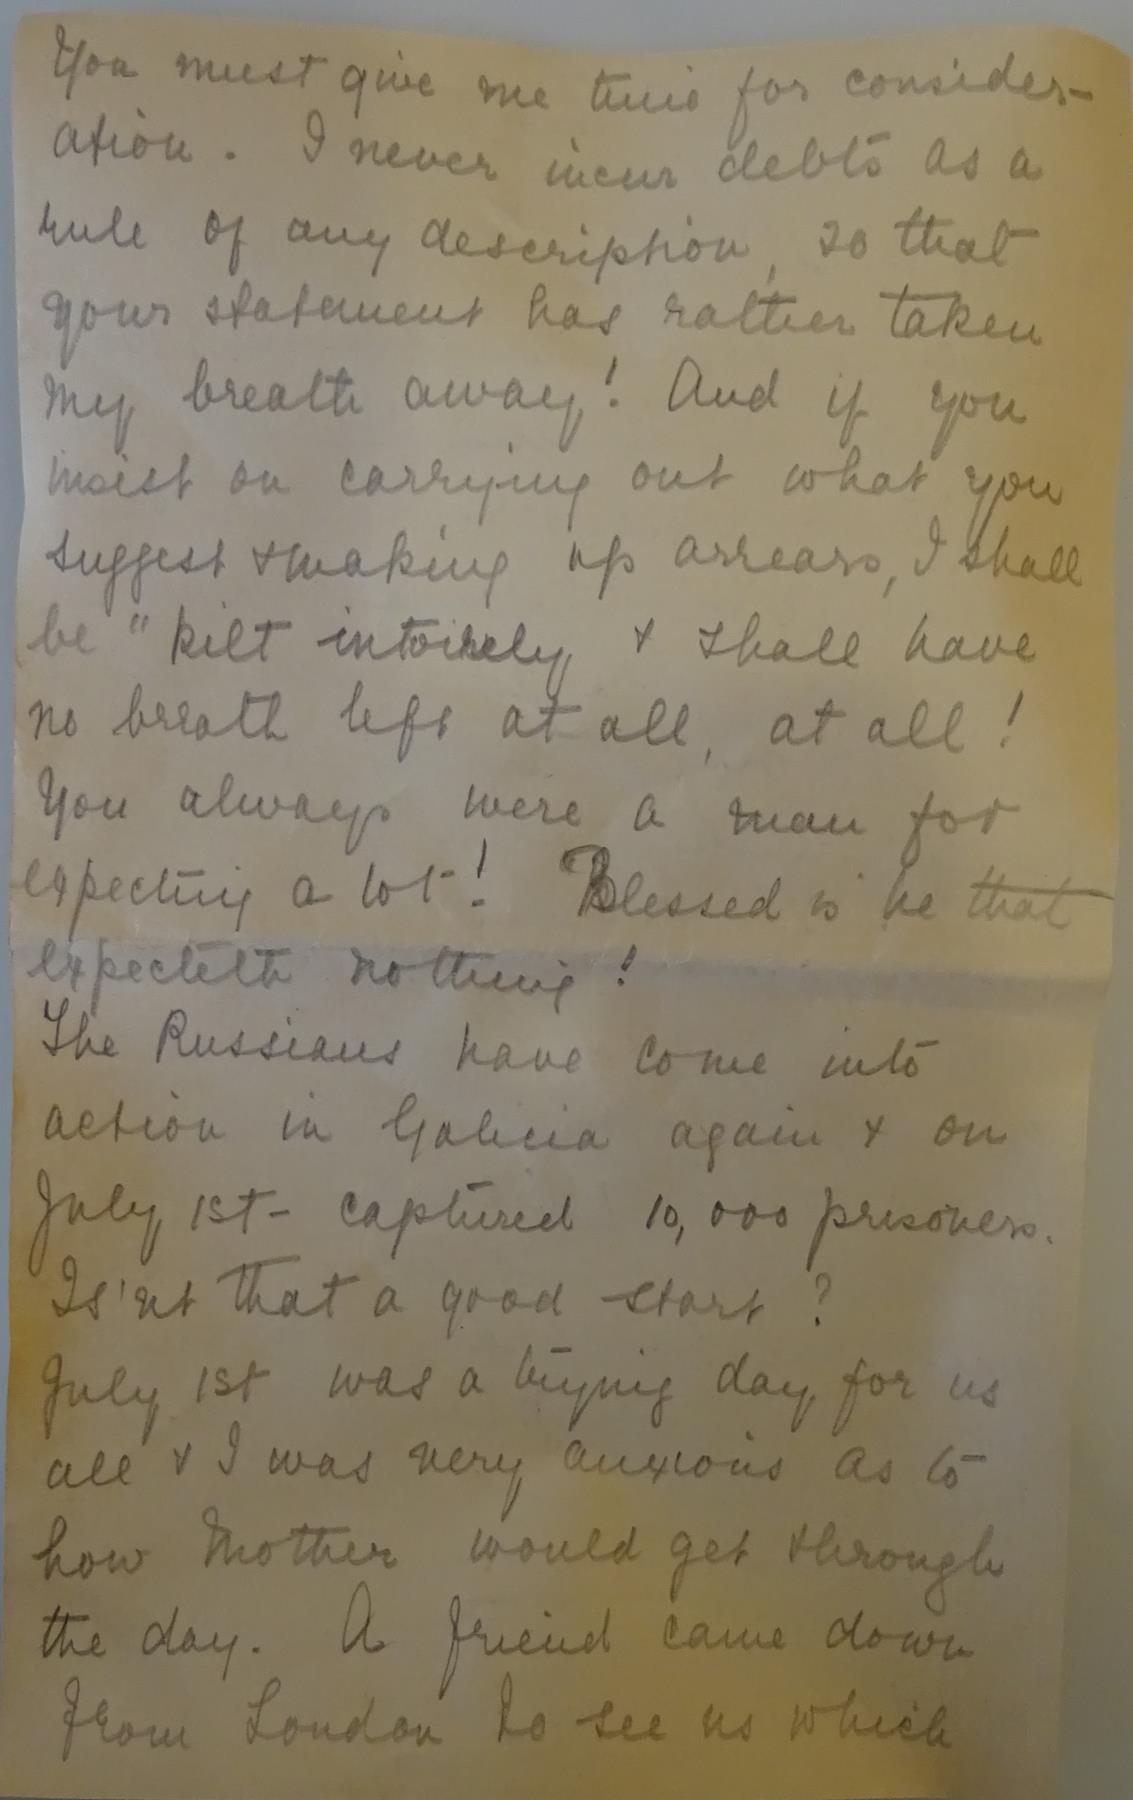 You must give me time for consider-
ation. I never incur debts as a
rule of any description, so that
your statement has rather taken
my breath away! And if you
insist on carrying out what you
suggest & making up arrears, I shall
be "kilt intoirely & shall have
no breath left at all, at all!
You always were a man for
expecting a lot! Blessed is he that
expecteth nothing!
The Russians have come into
action in Galicia again & on
July 1st - captured 10,000 prisoners.
Is'nt that a good start?
July 1st was a trying day for us
all & I was very anxious as to
how Mother would get through
the day. A friend came down
from London to see us which